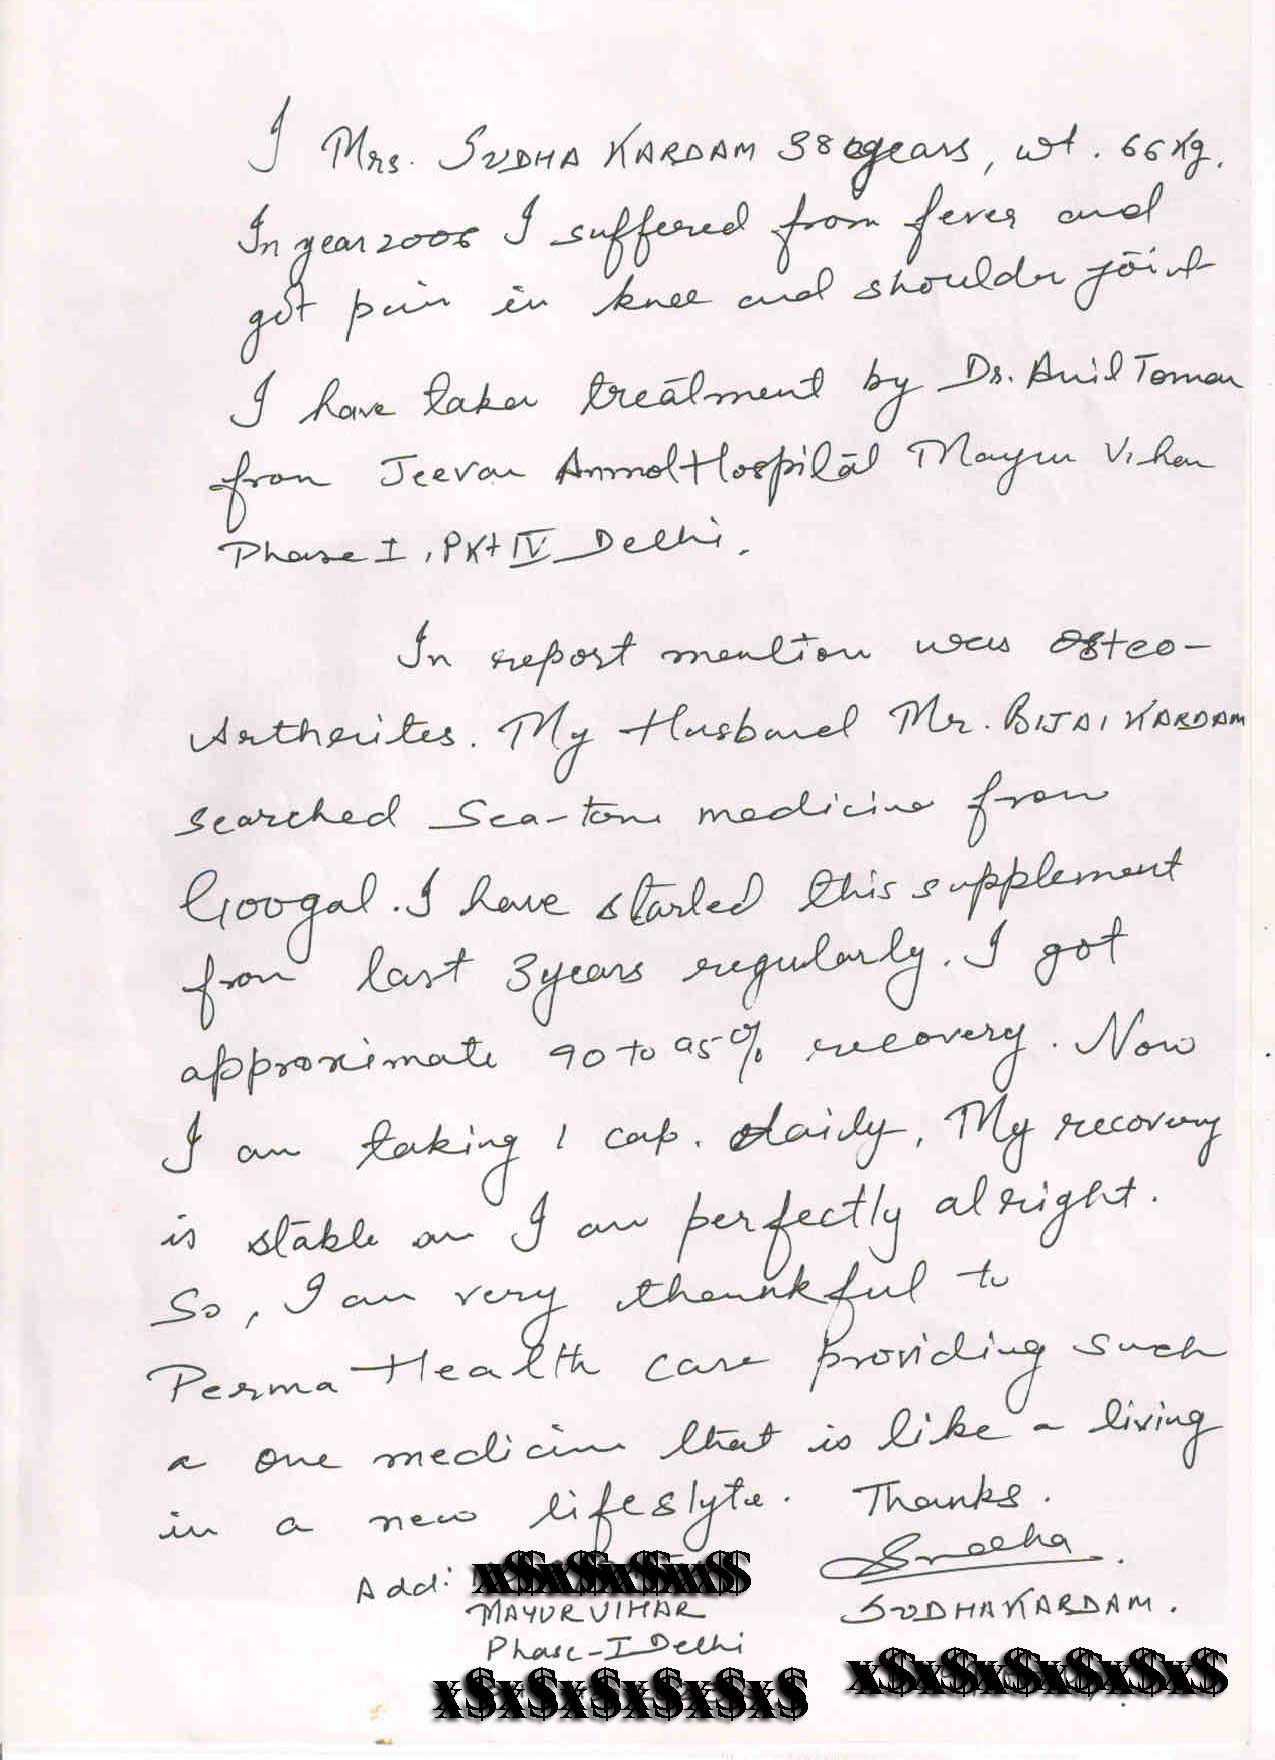 I Mrs. SUDHA KARDAM 38 years, wt. 66 Kg.
In year 2006 I suffered from fever and
got pain in knee and shoulder joint
I have taken treatment by Dr. Anil Tomar
from Jeevan Anmol Hospital Mayur Vihar
Phase I, PKt IV Delhi.
In report mention was Osteo-
Artherites. My Husband Mr. BIJAI KARDAM
searched Sea-tone medicine from
Googal. I have started this supplement
from last 3 years regularly. I got
approximate 90 to 95% recovery. Now
I am taking 1 cap. daily, My recovery
is stable an I am perfectly alright.
So, I am very thankful to
Perma Health care providing such
a one medicine that is like a living
in a new lifeslyte. Thanks.
Sudha
Add:
MAYUR VIHAR
SUDHA KARDAM.
Phase-I Delhi